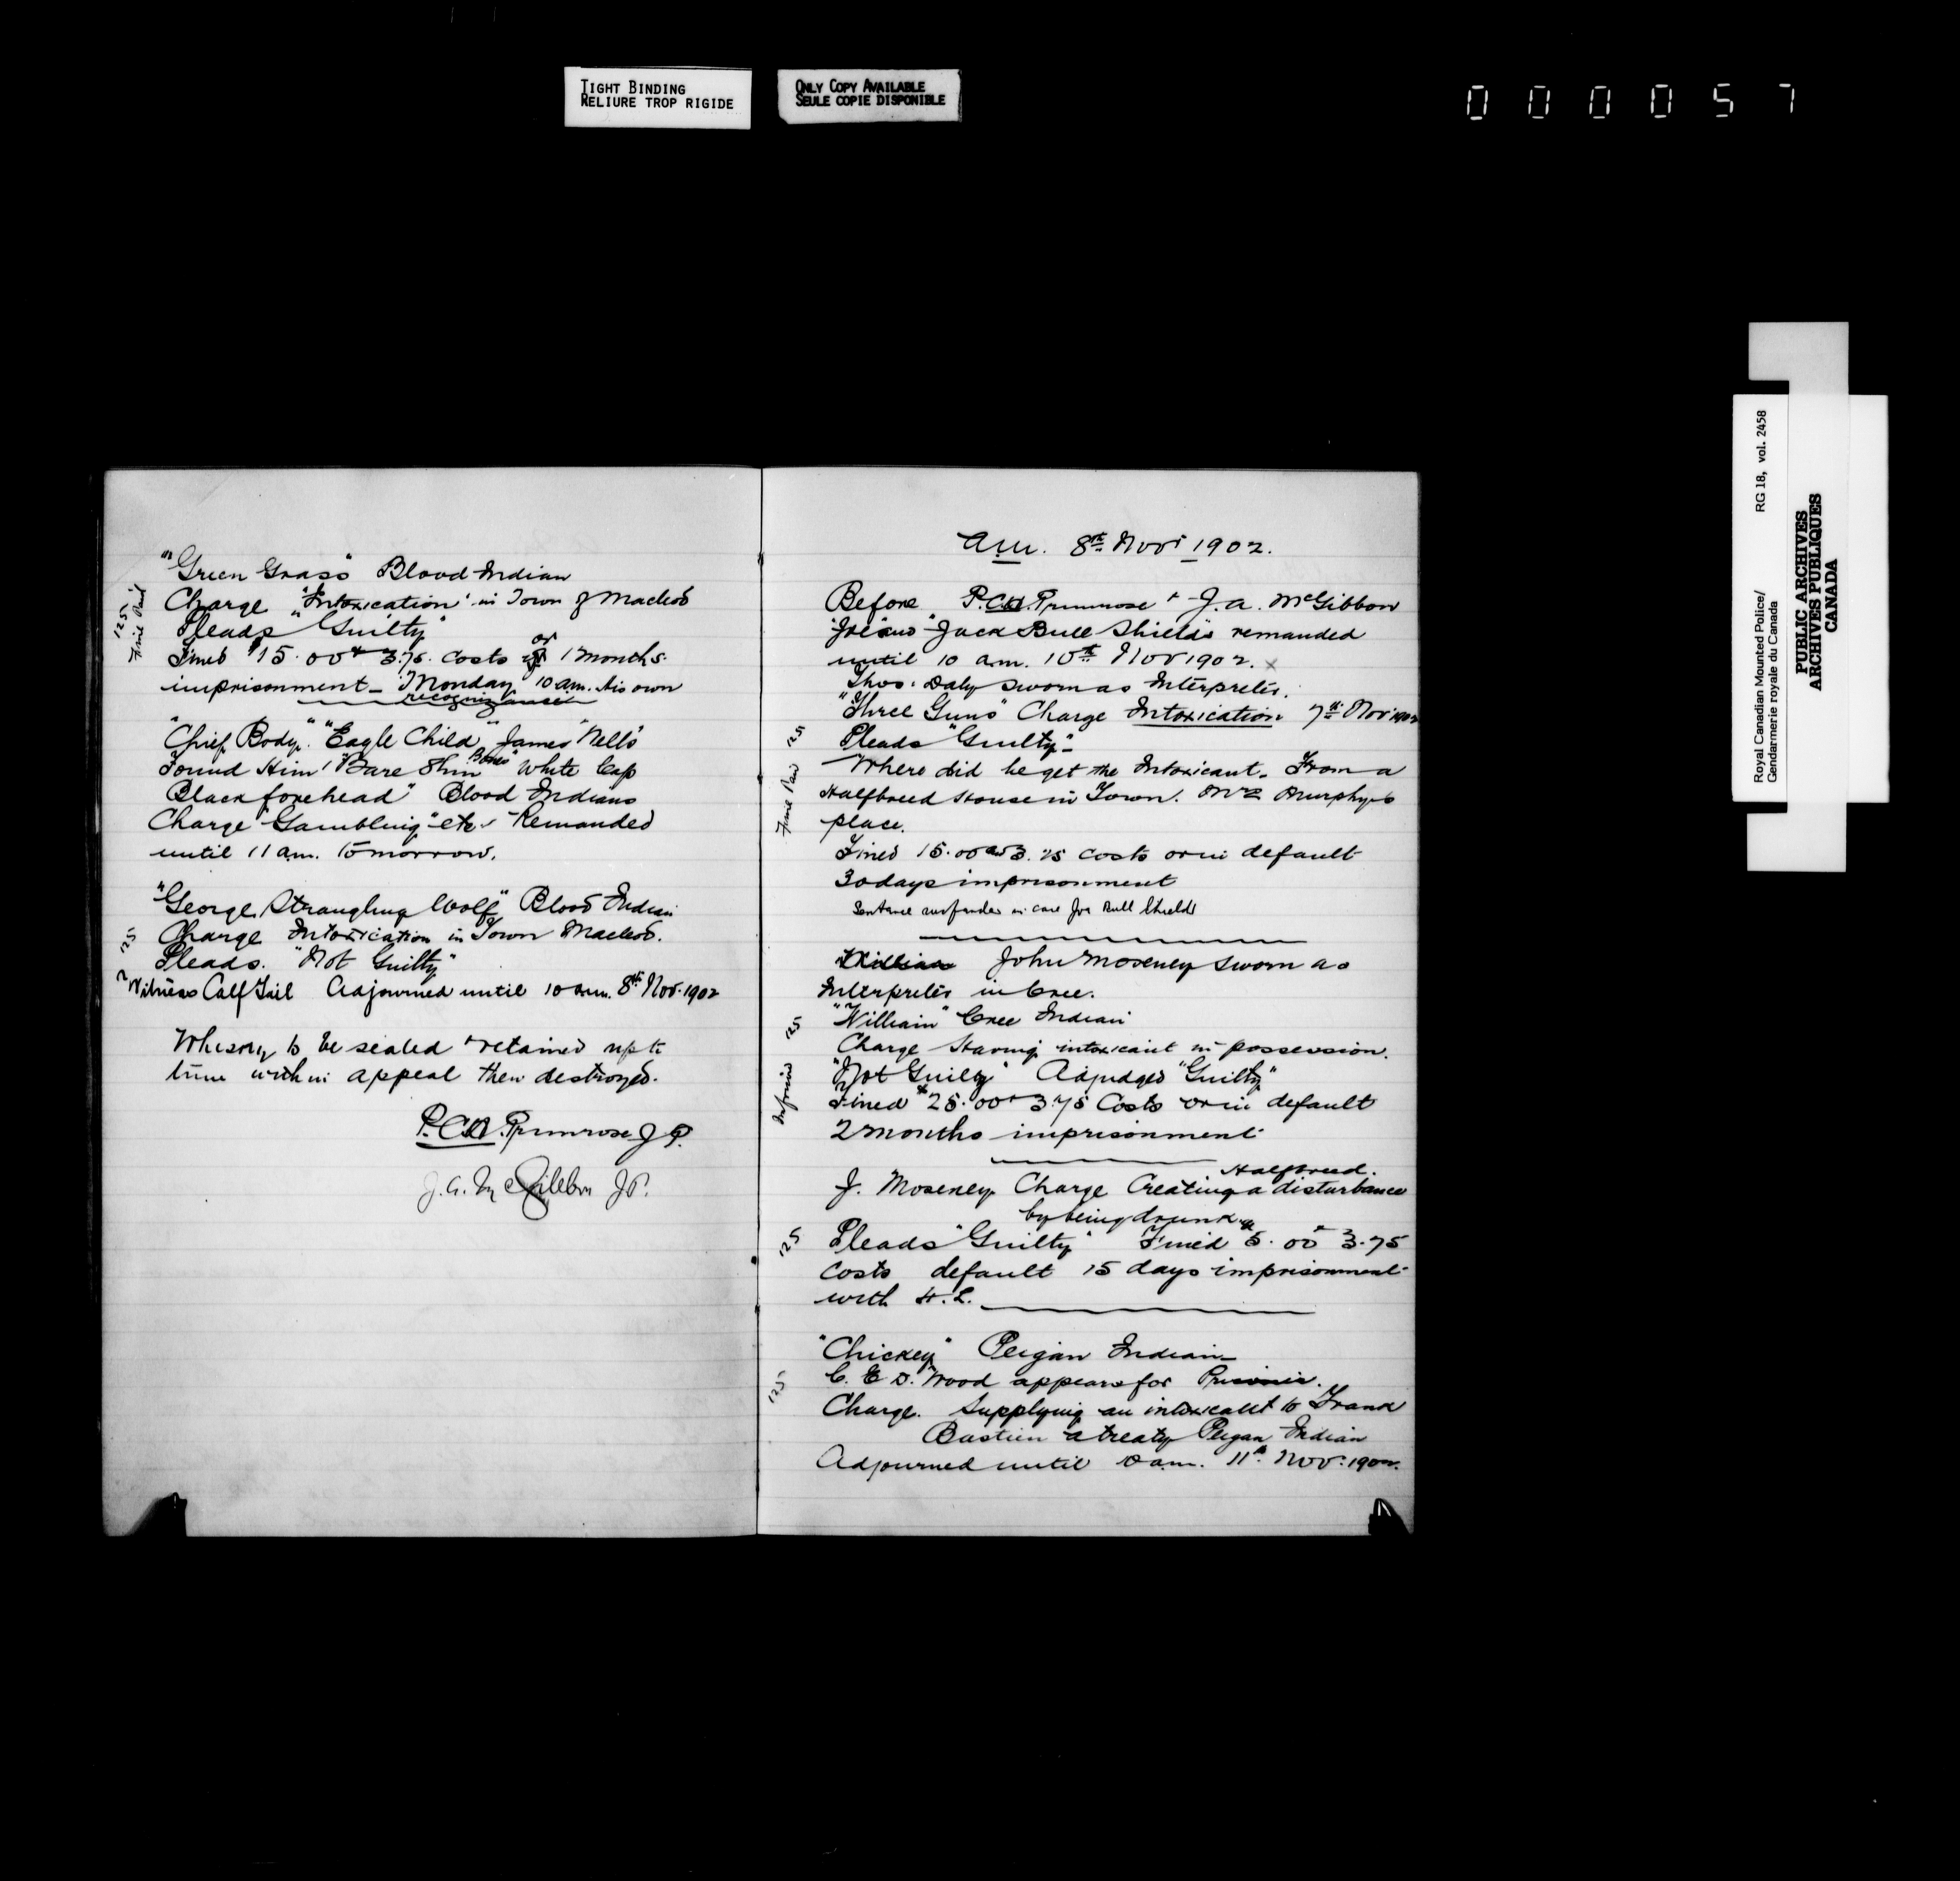 TIGHT BINDING
RELIURE TROP RIGIDE
ONLY COPY AVAILABLE
SEULE COPIE DISPONIBLE
000057
"Green Grass" Blood Indian
Charge "Intoxication" in Town of Macleod
Pleads "Guilty"
Fined $15.00 & 3.75. Costs or 1 months.
imprisonment - Monday 10 am. His own
recognizance
"Chief Body." "Eagle Child" James "Wells"
Found Him" "Bare Shin Bones" White Cap
Black forehead" Blood Indians
Charge "Gambling" etc - Remanded
until 11 am. tomorrow.
"George Strangling Wolf" Blood Indian
Charge Intoxication in Town Macleod.
Pleads. "Not Guilty"
Witness Calf Tail Adjourned until 10 am. 8th Nov. 1902
Whiskey to be sealed & retained up to
time within appeal then destroyed.
P.C.H. Primrose J.P.
J.A. McGibbon JP.
125
Fine Paid
125
a.m. 8th Novr 1902.
Before P.C.H. Primrose & J.A. McGibbon
"Joe" and "Jack Bull Shields" remanded
until 10 a.m. 10th Nov 1902. x
Thos. Daly sworn as Interpreter.
"Three Guns" Charge Intoxication 7th Nov 1902
Pleads "Guilty" -
Where did he get the Intoxicant. From a
Halfbreed House in Town. Mrs Murphys
place.
Fined 15.00 and 3.75 costs or in default
30 days imprisonment
Sentence suspended in case Joe Bull Shields
William John Moseney sworn as
Interpreter in Cree.
"William" Cree Indian
Charge Having intoxicant in possession.
"Not Guilty" Adjudged "Guilty"
Fined $25.00 & 3.75 Costs or in default
2 months imprisonment
Halfbreed.
J. Moseney Charge Creating a disturbance
by being drunk
Pleads "Guilty" Fined 5.00 & 3.75
Costs default 15 days imprisonment
with H.L.
"Chickey" Peigan Indian -
C.E.D. Wood appears for Prisoner.
Charge. Supplying an intoxicant to Frank
Bastien a treaty Peigan Indian
Adjourned until 10 a.m. 11th Nov. 1902.
125
Fine Paid
125
125
125
Royal Canadian Mounted Police/
Gendarmerie royale du Canada
RG 18, vol. 2458
PUBLIC ARCHIVES
ARCHIVES PUBLIQUES
CANADA